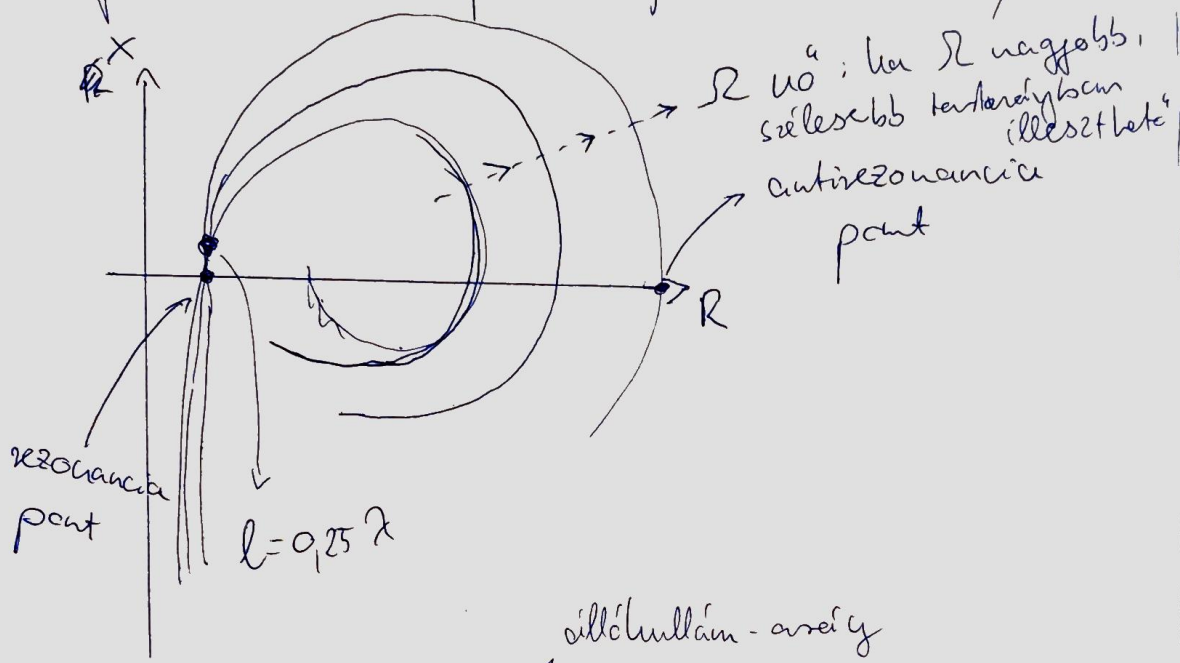 X
Ω nő: ha Ω nagyobb,
szélesebb tartományban
illeszthető
antirezonancia
pont
R
rezonancia
pont
l=0,25 λ
állóhullám-arány